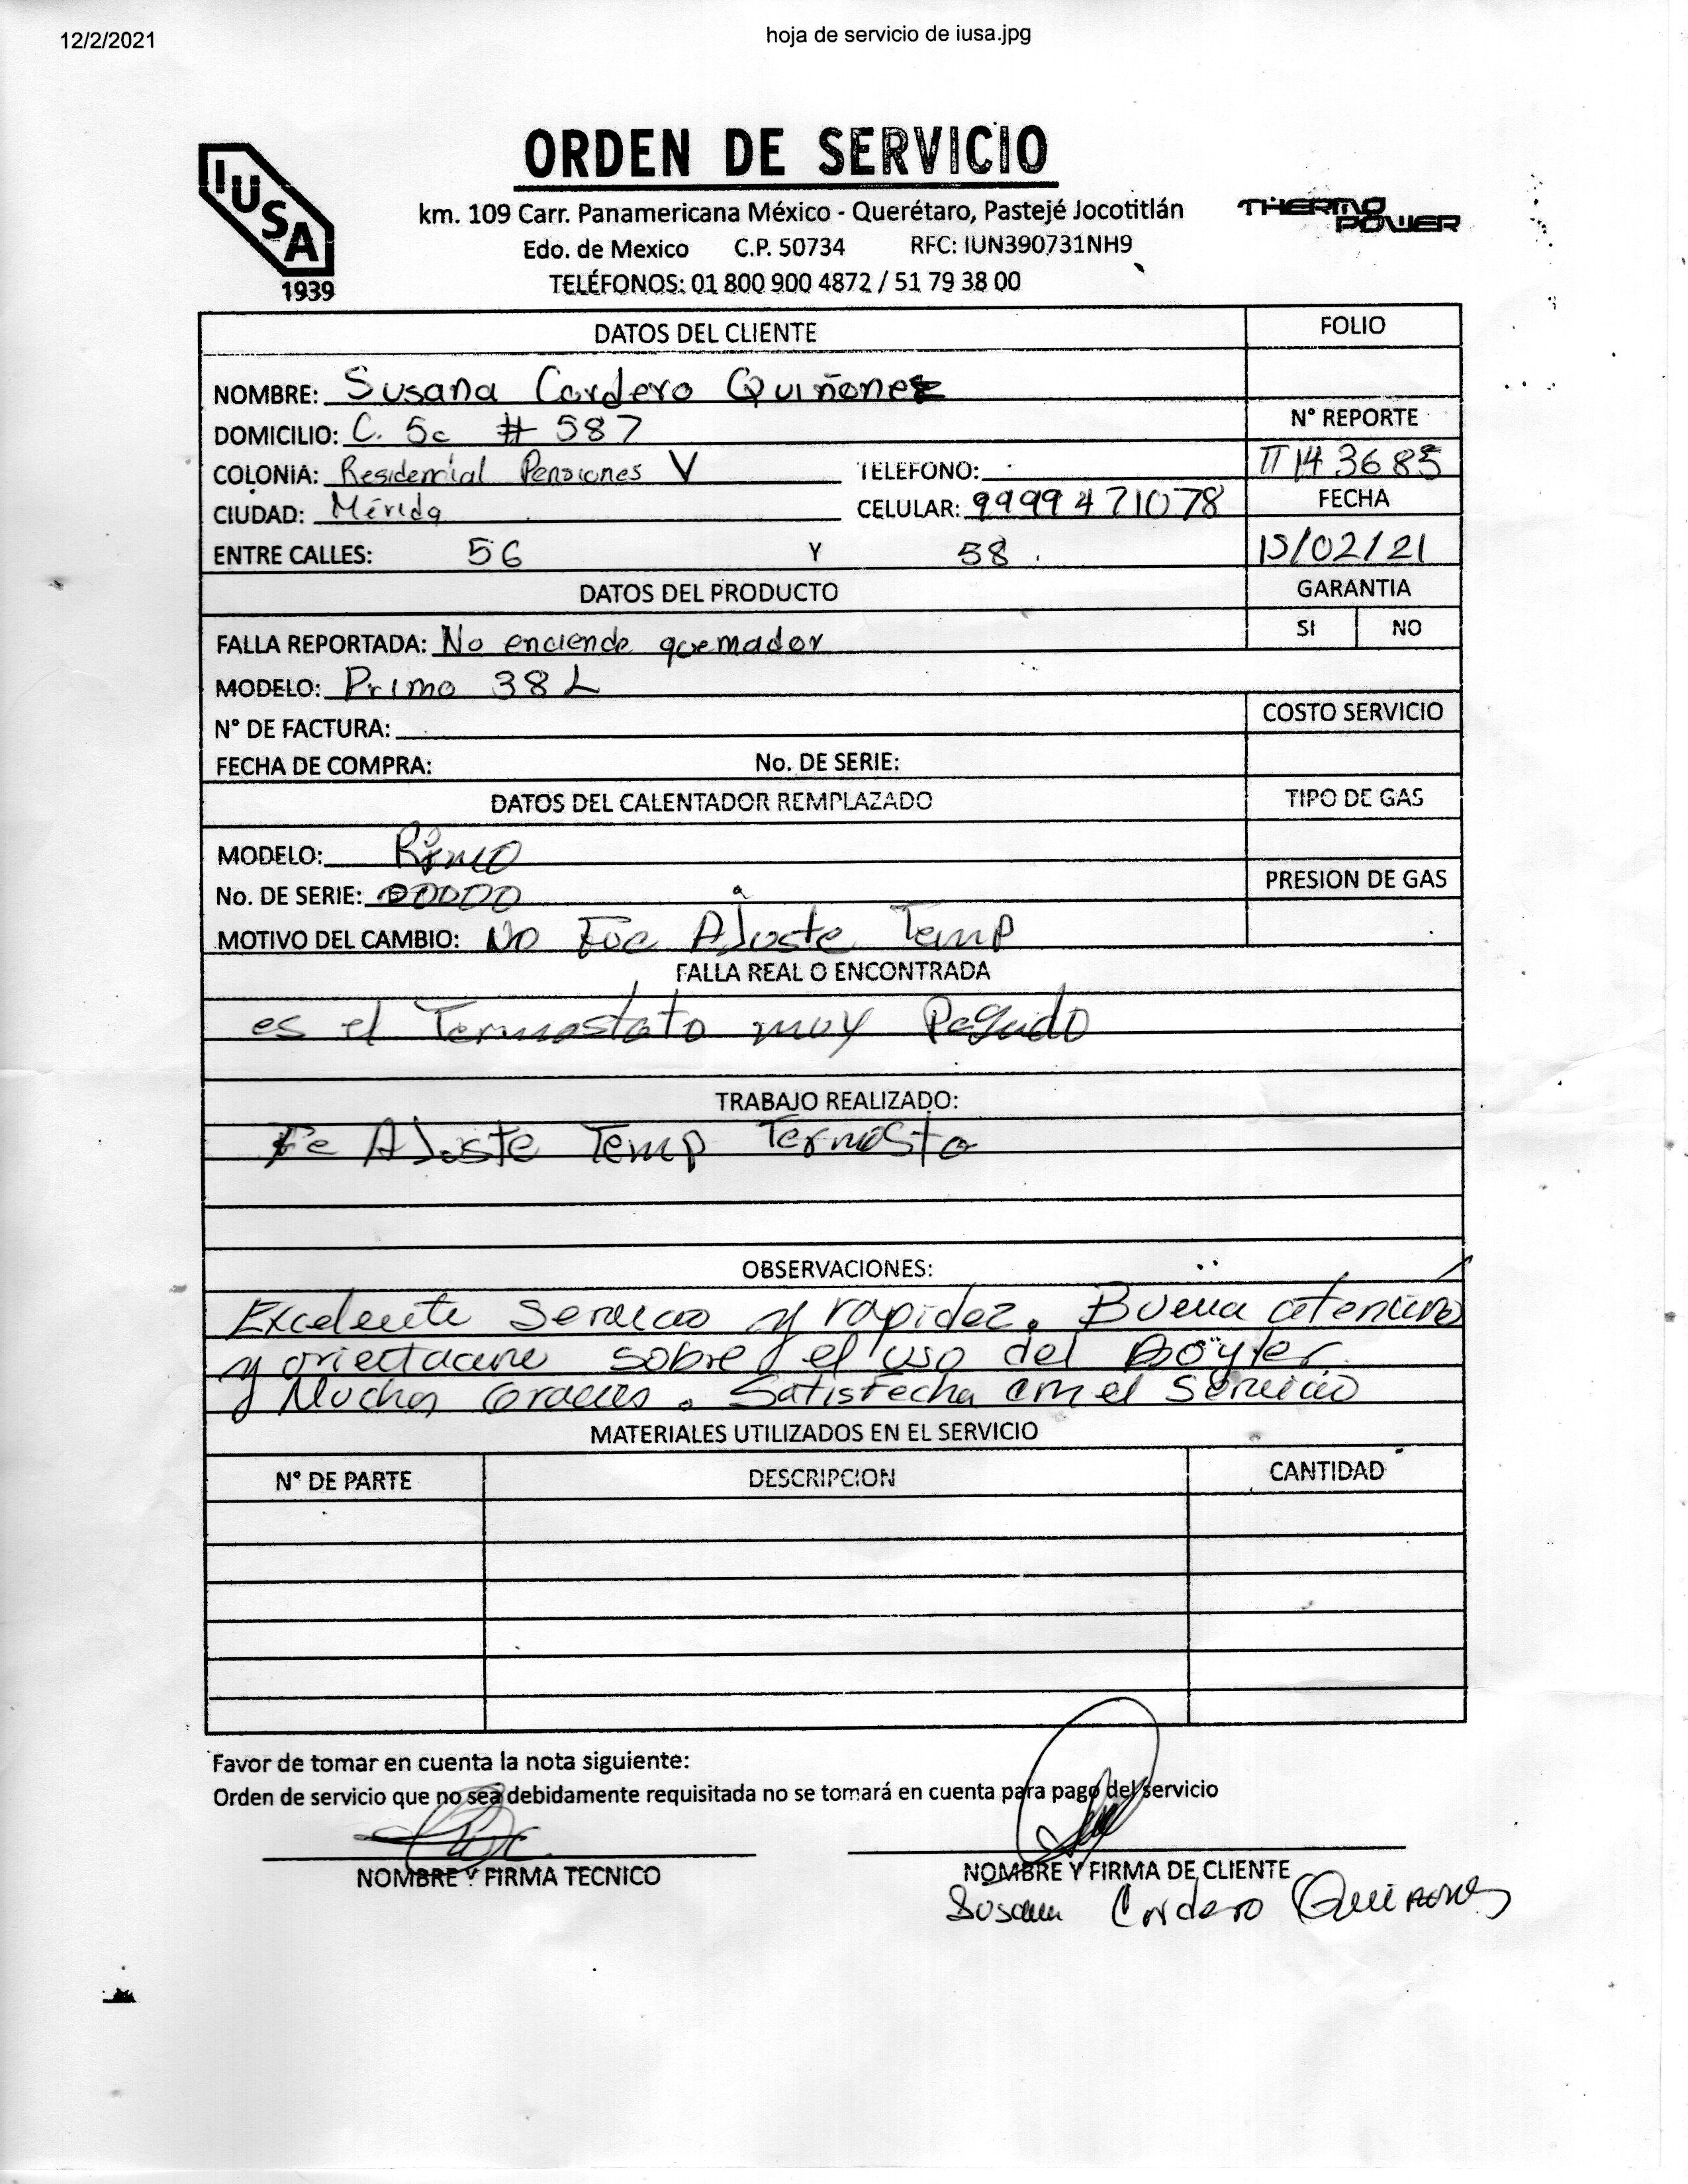 12/2/2021 hoja de servicio de iusa.jpg
IUSA
1939
ORDEN DE SERVICIO
km. 109 Carr. Panamericana México - Querétaro, Pastejé Jocotitlán
Edo. de Mexico C.P. 50734 RFC: IUN390731NH9
TELÉFONOS: 01 800 900 4872 / 51 79 38 00
THERMO
POWER
DATOS DEL CLIENTE FOLIO
NOMBRE: Susana Cordero Quiñones
N° REPORTE
DOMICILIO: C. 5c # 587
COLONIA: Residencial Pensiones V TELEFONO: 143685
CIUDAD: Mérida CELULAR: 9999471078 FECHA
ENTRE CALLES: 56 Y 58 15/02/21
DATOS DEL PRODUCTO GARANTIA
SI NO
FALLA REPORTADA: No enciende quemador
MODELO: Primo 38 L
COSTO SERVICIO
N° DE FACTURA:
FECHA DE COMPRA: No. DE SERIE:
DATOS DEL CALENTADOR REMPLAZADO TIPO DE GAS
MODELO:
No. DE SERIE: 00000 PRESION DE GAS
MOTIVO DEL CAMBIO: No Fue AJuste Temp
FALLA REAL O ENCONTRADA
es el Termostato muy Pegado
TRABAJO REALIZADO:
Fe AJuste Temp Termosta
OBSERVACIONES:
Excelente Servicio y rapidez. Buena atención
y orientacion sobre el uso del Boyler
y Muchas Gracias. Satisfecha con el Servicio
MATERIALES UTILIZADOS EN EL SERVICIO
N° DE PARTE DESCRIPCION CANTIDAD
Favor de tomar en cuenta la nota siguiente:
Orden de servicio que no sea debidamente requisitada no se tomará en cuenta para pago del servicio
NOMBRE Y FIRMA TECNICO NOMBRE Y FIRMA DE CLIENTE
Susana Cordero Quiñones